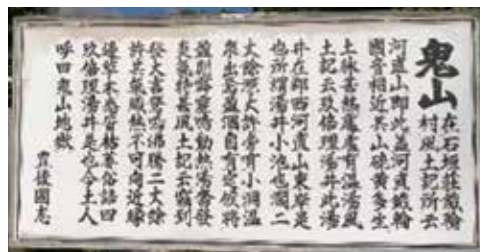 鬼山
在石垣莊鐵輪
村風土記所云
河直山即此蓋河直鐵輪
國音相近其山硫黄多生
土脉甚熱處處有温湯風
土記云玖倍理湯井此湯
井在郡西河直山東岸是
也所謂湯井小池也濶二
丈餘深丈許旁有小洞温
泉出焉盈涸自有定候將
盈則 鳴動熱湯奮發
炎氣特甚風土記云竊到
發大言驚鳴沸騰二丈餘
許其氣熾熱不可向近縁
邊草木悉皆枯萎俗語曰
玖倍理湯井是也今土人
呼曰鬼山地獄
豊後國志